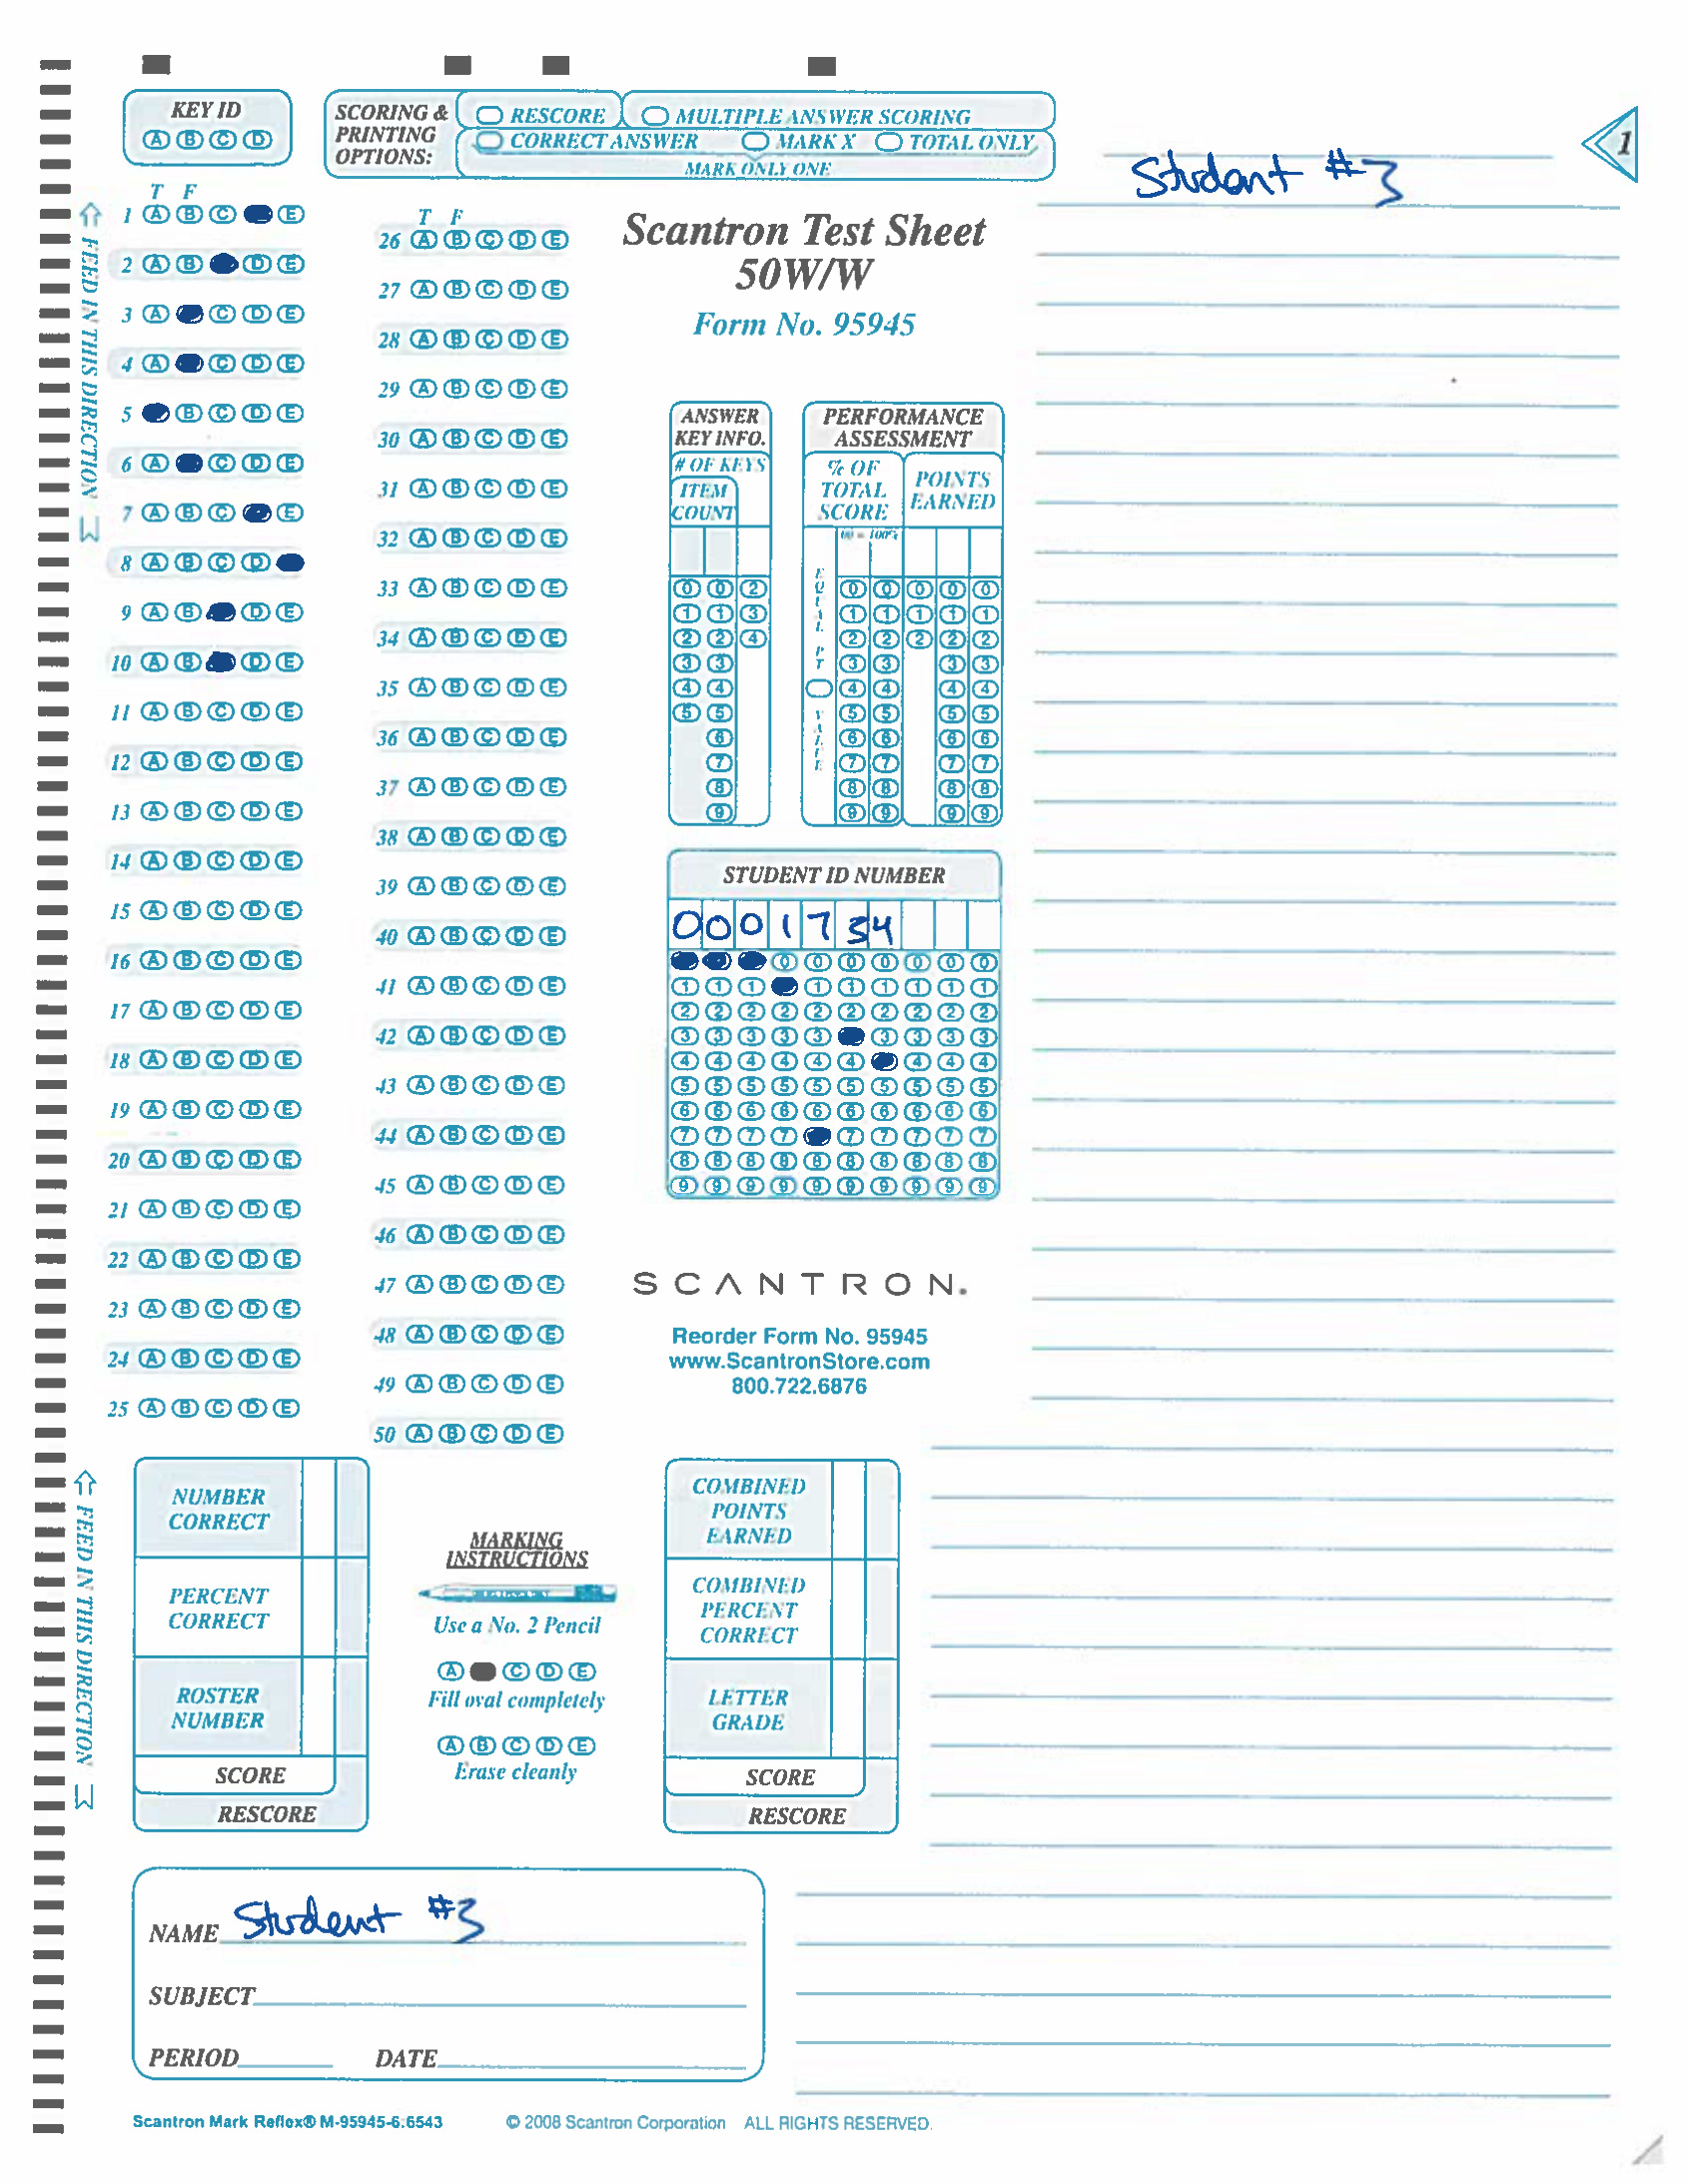 KEY ID
A B C D
SCORING &
PRINTING
OPTIONS:
RESCORE MULTIPLE ANSWER SCORING
CORRECT ANSWER MARK X TOTAL ONLY
MARK ONLY ONE
1
Student #3
FEED IN THIS DIRECTION
T F
1 A B C E
2 A B D E
3 A C D E
4 A C D E
5 B C D E
6 A C D E
7 A B C E
8 A B C D
9 A B D E
10 A B D E
11 A B C D E
12 A B C D E
13 A B C D E
14 A B C D E
15 A B C D E
16 A B C D E
17 A B C D E
18 A B C D E
19 A B C D E
20 A B C D E
21 A B C D E
22 A B C D E
23 A B C D E
24 A B C D E
25 A B C D E
T F
26 A B C D E
27 A B C D E
28 A B C D E
29 A B C D E
30 A B C D E
31 A B C D E
32 A B C D E
33 A B C D E
34 A B C D E
35 A B C D E
36 A B C D E
37 A B C D E
38 A B C D E
39 A B C D E
40 A B C D E
41 A B C D E
42 A B C D E
43 A B C D E
44 A B C D E
45 A B C D E
46 A B C D E
47 A B C D E
48 A B C D E
49 A B C D E
50 A B C D E
Scantron Test Sheet
50W/W
Form No. 95945
ANSWER
KEY INFO.
# OF KEYS
ITEM
COUNT
0 0 2
1 1 3
2 2 4
3 3
4 4
5 5
6
7
8
9
PERFORMANCE
ASSESSMENT
% OF
TOTAL
SCORE
POINTS
EARNED
00 = 100%
EQUAL PT VALUE
0 0 0 0 0
1 1 1 1 1
2 2 2 2 2
3 3 3 3
4 4 4 4
5 5 5 5
6 6 6 6
7 7 7 7
8 8 8 8
9 9 9 9
STUDENT ID NUMBER
0 0 0 1 7 3 4
0 0 0 0 0 0 0
1 1 1 1 1 1 1 1 1
2 2 2 2 2 2 2 2 2 2
3 3 3 3 3 3 3 3 3
4 4 4 4 4 4 4 4 4
5 5 5 5 5 5 5 5 5 5
6 6 6 6 6 6 6 6 6 6
7 7 7 7 7 7 7 7 7
8 8 8 8 8 8 8 8 8 8
9 9 9 9 9 9 9 9 9 9
SCANTRON.
Reorder Form No. 95945
www.ScantronStore.com
800.722.6876
FEED IN THIS DIRECTION
NUMBER
CORRECT
PERCENT
CORRECT
ROSTER
NUMBER
SCORE
RESCORE
MARKING
INSTRUCTIONS
Use a No. 2 Pencil
A C D E
Fill oval completely
A B C D E
Erase cleanly
COMBINED
POINTS
EARNED
COMBINED
PERCENT
CORRECT
LETTER
GRADE
SCORE
RESCORE
NAME Student #3
SUBJECT
PERIOD DATE
Scantron Mark Reflex® M-95945-6.6543 © 2008 Scantron Corporation ALL RIGHTS RESERVED.